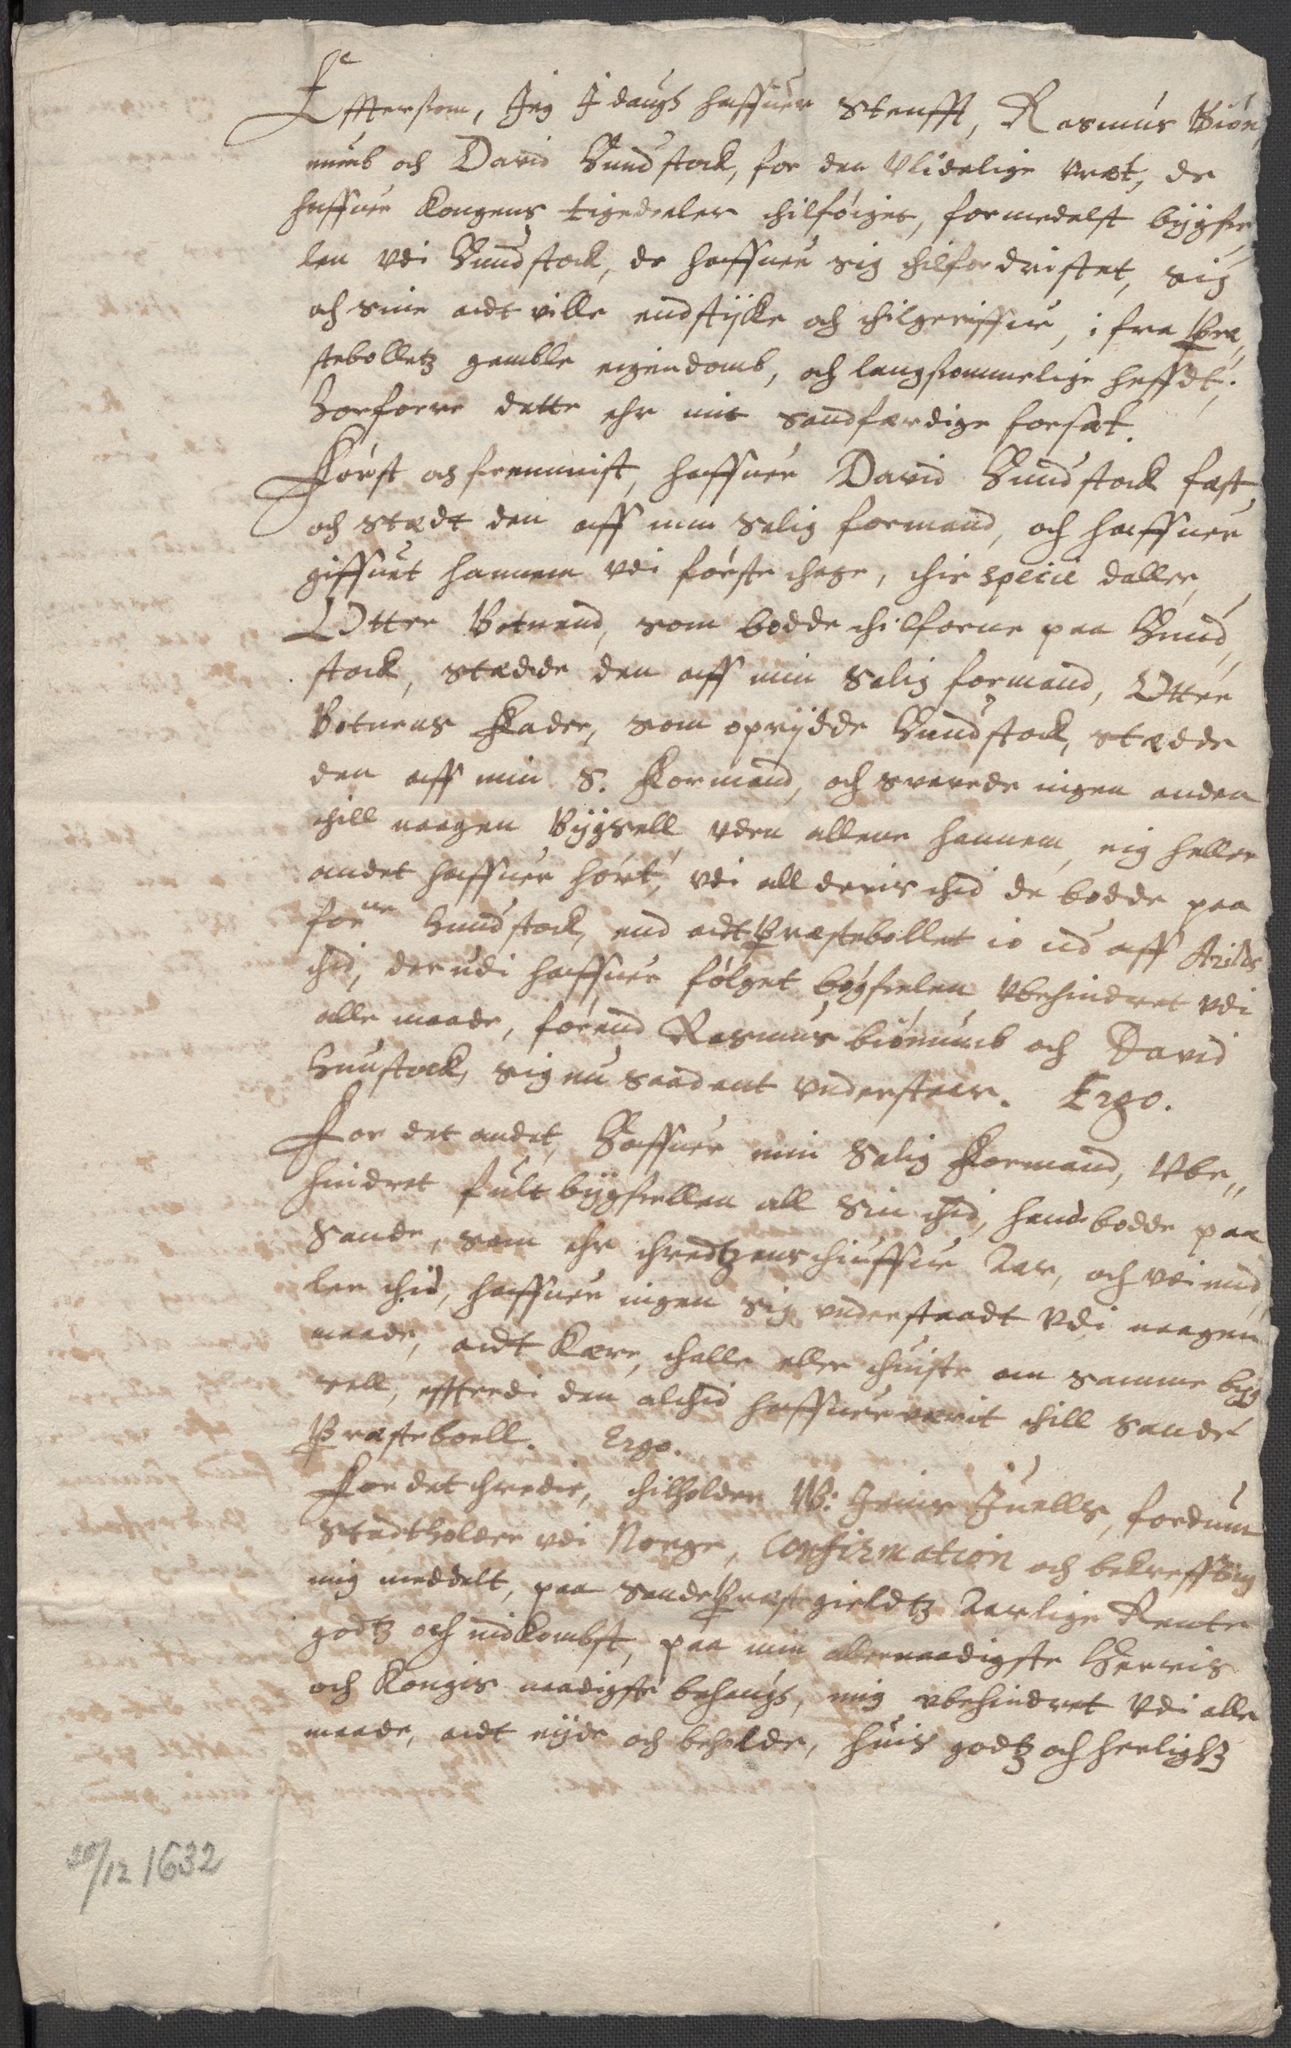 Effterson, Jeg J daugh haffuer Steufft, Rasmus Biön,
numb och David Hundstock, for den Vlidelige vræt, de
haffuer Kongens tigedeeler thilföiget, formedelst bÿgse,
len vdi Hundstock, de haffuer sig thilfordristet, sig
och sine adt ville endstÿcke och thilgriffue, i fra Præ,
stebolletz gamble eigendomb, och langsommelige heffdt,
Horforre dette ehr mit sandfærdige forsæt.
Först och fremmist, haffuer David Hundstock fæst,
och stædt den aff min Salig formand, och haffuer
giffuet hannem vdi förste thage, thie specie daller,
Otter Botnend, som bodde thilforne paa Hund,
stock, stædde den aff min Salig formand, Otter
Botnens Fader, som oprÿdde Hundstock, stædde
den aff min S. Formand, och svarede ingen anden
thill naagen Bÿgsell vden allene hannem, eig heller
andet haffuer hört, vdi all deris thid de bodde paa
forne Hundstock, end adt Præstebollet io ud aff Arilds
thid, derudi haffuer fölget bögselen vbehindret vdi
alle maade, förend Rasmus biönumb och David
Hunstock, sig nu saadant vnderstaar. Ergo.
For det andet, Haffuer min Salig Formand, Vbe,,
hindret fult bÿgsellen all sin thid, hand bodde paa
Sande, som ehr thredtzens thiuffue Aar, och vdi mid,
ler thid, haffuer ingen sig vnderstaadt vdi naagen
maade, adt Kære, thalle eller thuiste om samme bÿg
sell, efftredi den altid haffuer værit thill Sande
Præsteboell. Ergo.
For det thredie, thilholder W: Jenis Juells, fordum
Stadtholder vdi Norge, Confirmation och bekrefftning
mig meddelt, paa Sande Præstegieldtz Aarlige Rente
godtz och indkombst, paa min allernaadigste Herris
och Kongis naadigste behaugh, mig vbehindret vdi alle
maade, adt nÿde och beholde, huis godtz och herlighed
20/12 1632